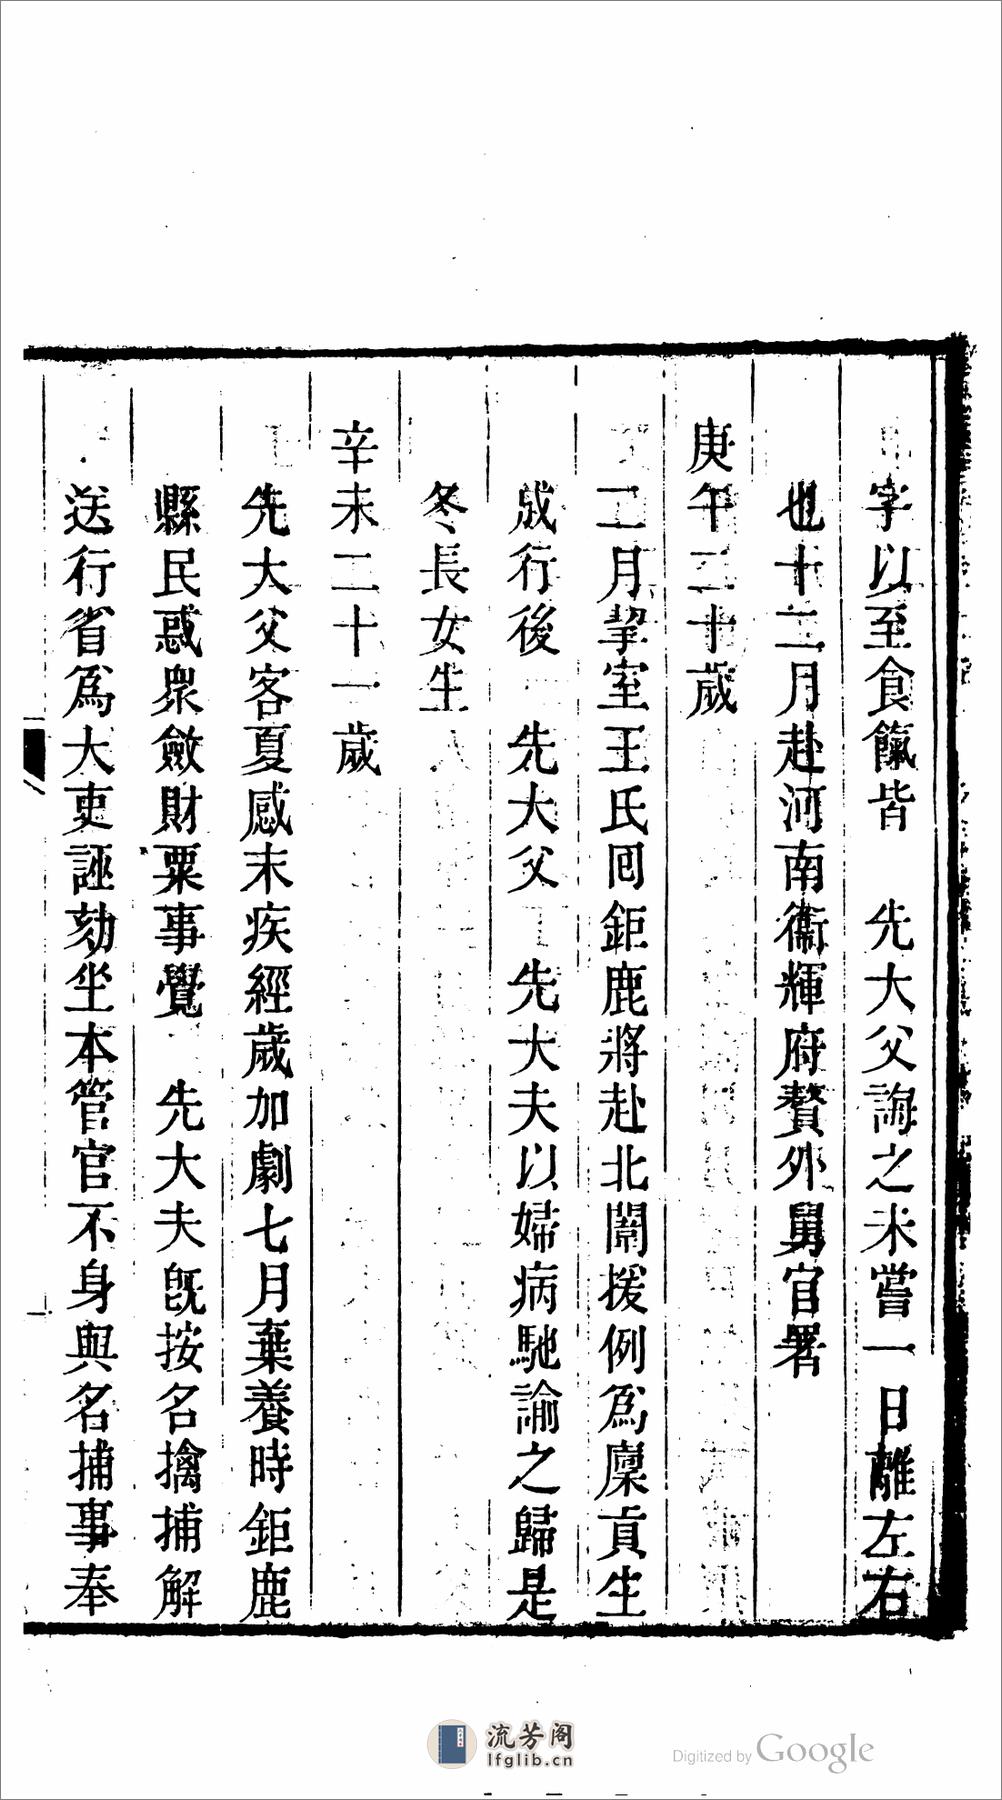 字以至食餼皆　先大父誨之未嘗一日離左右
也十二月赴河南衞輝府贅外舅官署
庚午二十歲
二月挈室王氏回鉅鹿將赴北闈援例爲廩貢生
成行後　先大父　先大夫以婦病馳諭之歸是
冬長女生
辛未二十一歲
先大父客夏感末疾經歲加劇七月棄養時鉅鹿
縣民惑衆斂財粟事覺　先大夫旣按名擒捕解
送行省爲大吏誣劾坐本管官不身與名捕事奉
流芳阁
lfglib.cn
Digitized by Google